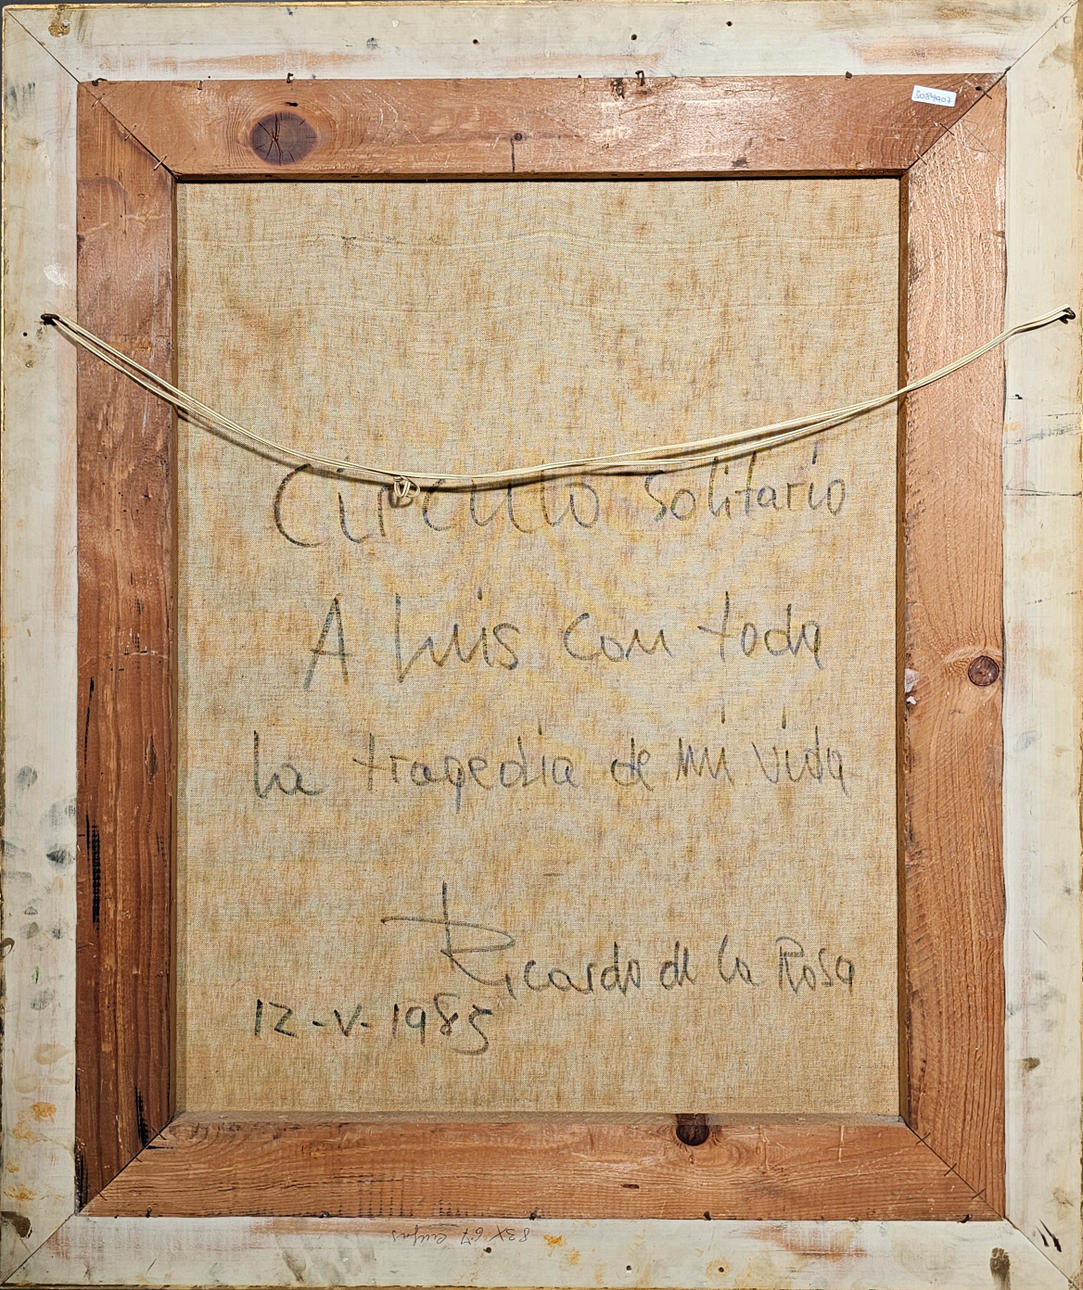 Circulo solitario
A Luis con toda
la tragedia de mi vida
Ricardo de la Rosa
12-V-1985
83X67